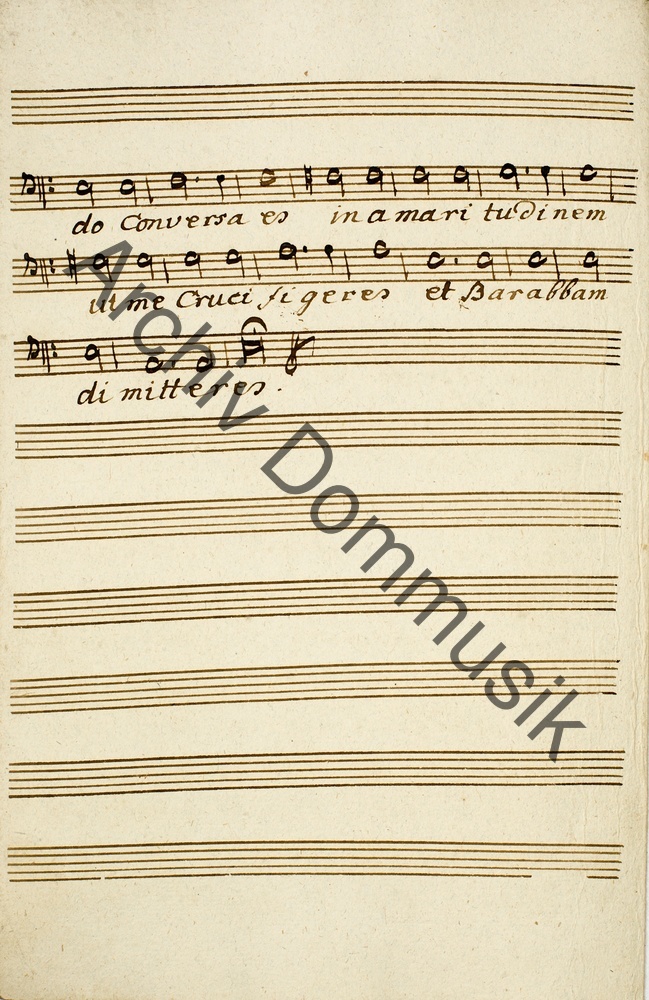 do Conversa es in amari tudinem
ut me Cruci figeres et Barabbam
di mitteres.
Archiv Dommusik